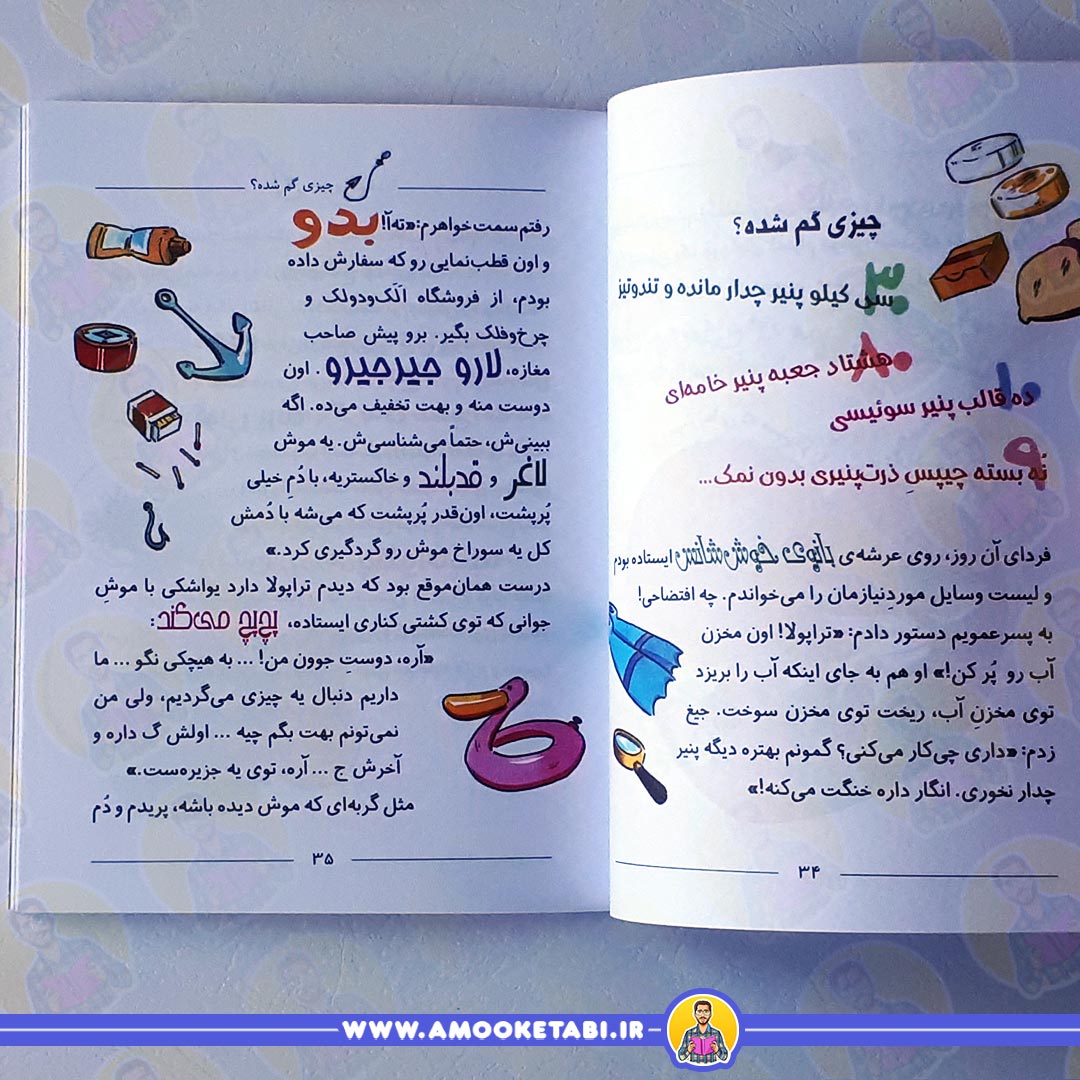 چیزی گم شده؟
۳۰
سی کیلو پنیر چدار مانده و تندوتیز
۸۰
هشتاد جعبه پنیر خامه‌ای
۱۰
ده قالب پنیر سوئیسی
۹
نُه بسته چیپسِ ذرت‌پنیری بدون نمک...
فردای آن روز، روی عرشه‌ی بانوی خوش‌شانس ایستاده بودم
و لیست وسایل موردِنیازمان را می‌خواندم. چه افتضاحی!
به پسرعمویم دستور دادم: «تراپولا! اون مخزن
آب رو پُر کن!» او هم به جای اینکه آب را بریزد
توی مخزنِ آب، ریخت توی مخزن سوخت. جیغ
زدم: «داری چی‌کار می‌کنی؟ گمونم بهتره دیگه پنیر
چدار نخوری. انگار داره خنگت می‌کنه!»
۳۴
چیزی گم شده؟
رفتم سمت خواهرم: «ته‌آ! بدو
و اون قطب‌نمایی رو که سفارش داده
بودم، از فروشگاه الَک‌ودولک و
چرخ‌وفلک بگیر. برو پیش صاحب
مغازه، لارو جیرجیرو. اون
دوست منه و بهت تخفیف می‌ده. اگه
ببینی‌ش، حتماً می‌شناسی‌ش. یه موش
لاغر و قدبلند و خاکستریه، با دُمِ خیلی
پُرپشت، اون‌قدر پُرپشت که می‌شه با دُمش
کل یه سوراخ موش رو گردگیری کرد.»
درست همان‌موقع بود که دیدم تراپولا دارد یواشکی با موشِ
جوانی که توی کشتی کناری ایستاده، پچ‌پچ می‌کند:
«آره، دوستِ جوون من! ... به هیچکی نگو ... ما
داریم دنبال یه چیزی می‌گردیم، ولی من
نمی‌تونم بهت بگم چیه ... اولش گ داره و
آخرش ج ... آره، توی یه جزیره‌ست.»
مثل گربه‌ای که موش دیده باشه، پریدم و دُم
۳۵
WWW.AMOOKETABI.IR